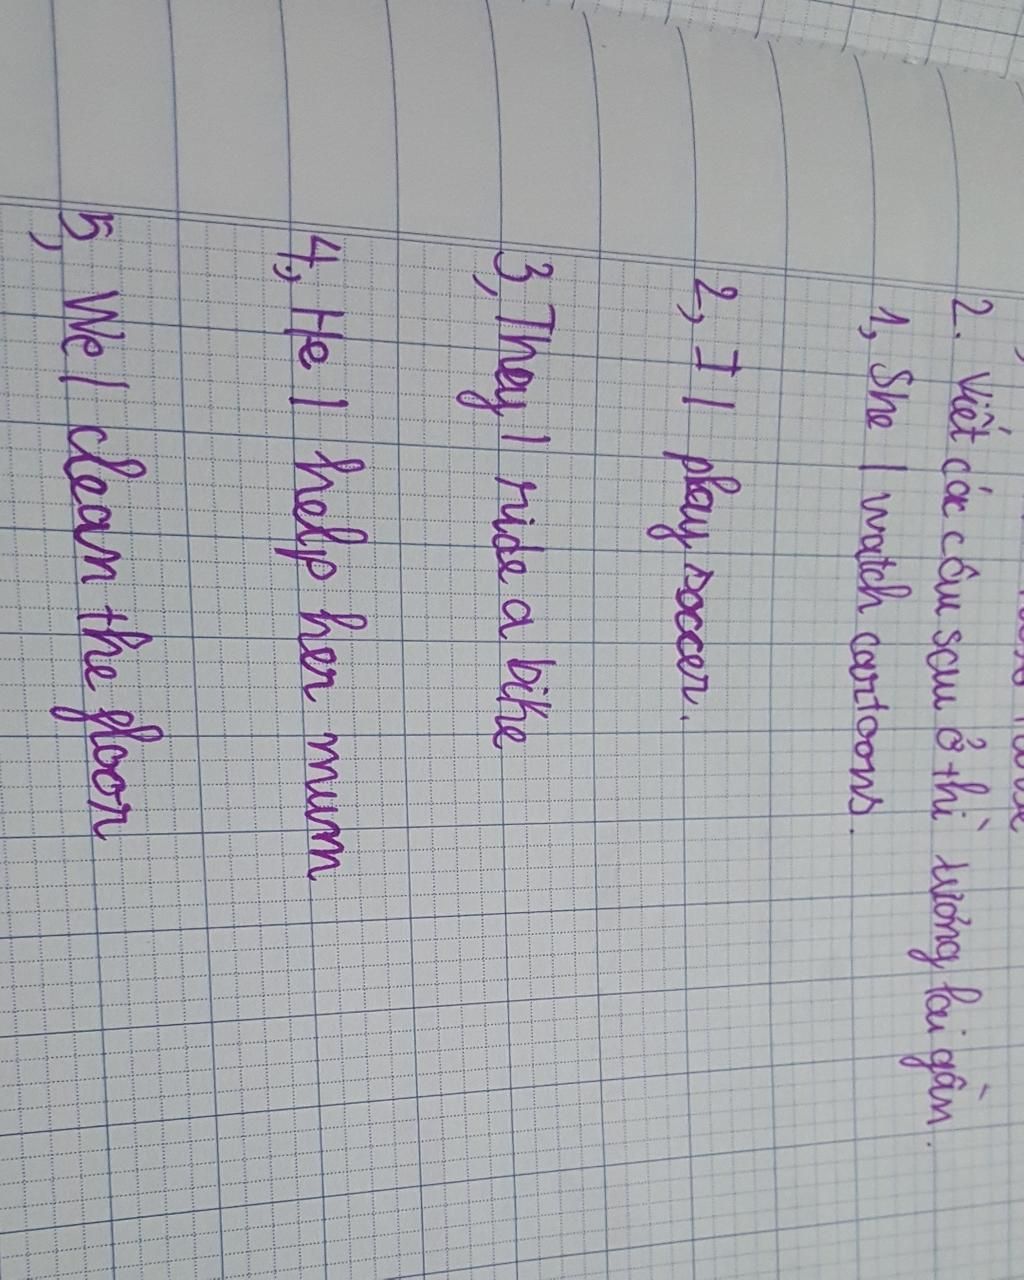 2. Viết các câu sau ở thì tương lai gần.
1, She / watch cartoons.
2, I / play soccer.
3, They / ride a bike
4, He / help her mum
5, We / clean the floor